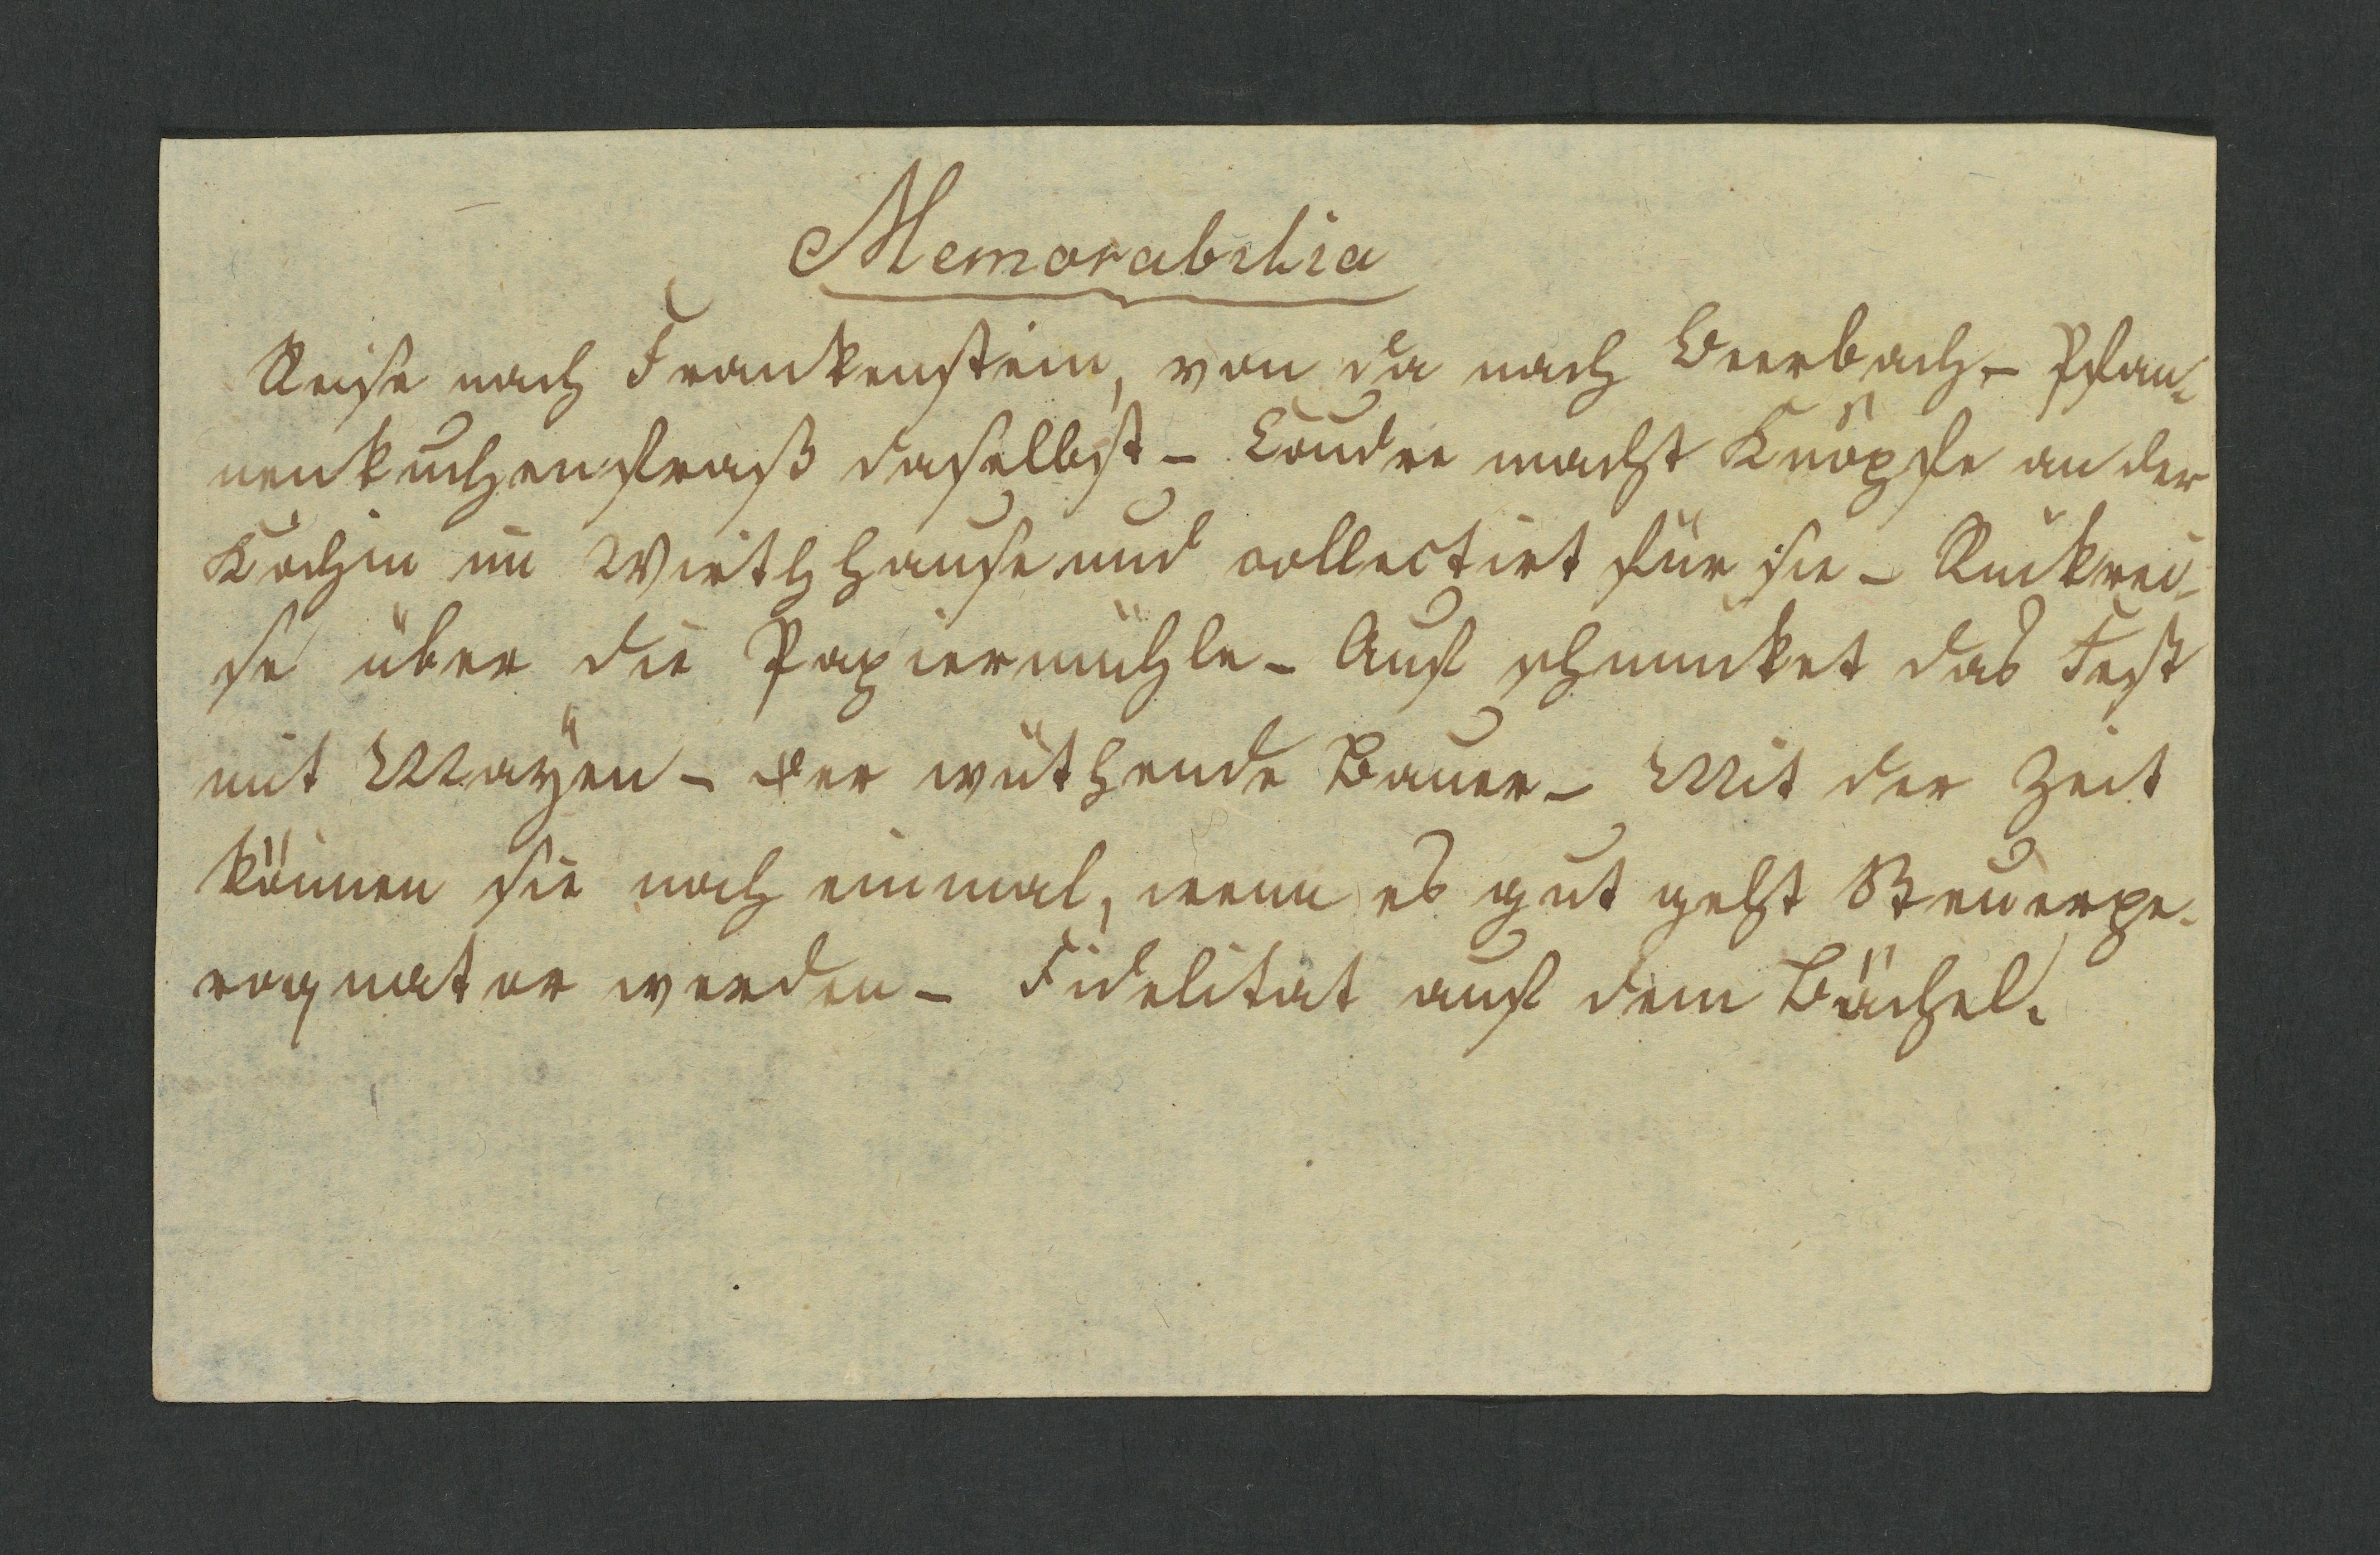 Memorabilia
Reise nach Frankenstein, von da nach Beerbach - Pfan-
nenkuchenfraß daselbst - Coudre macht Knöpfe an der
Köchin im Wirthhause und collectirt für sie - Rükrei-
se über die Papiermühle - Auf schmüket das Fest
mit Mayen - der wüthende Bauer - Mit der Zeit
können sie noch einmal, wenn es gut geht Steuerpe-
raequator werden - Fidelität auf dem Bächel.